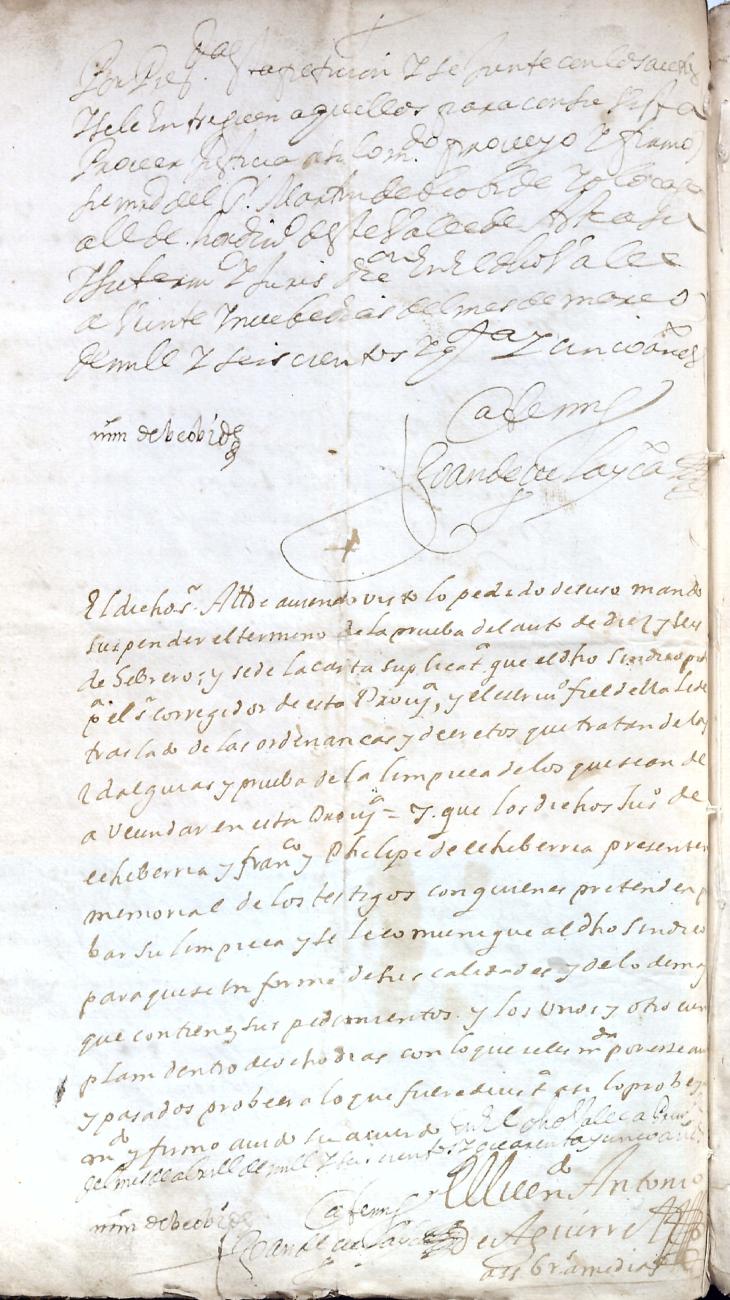 Por Pres.da esta peticion y se junte con los autos
y se le entreguen aquellos para con su vista
Proveer Justicia asi lo m.do proveyo y firmo
su md del S.r Martin de
alcalde hordin.o deste Valle de
y su term.o y Juris.on En el dho Valle
a Veinte y nuebe dias del mes de março
de mill y seis cientos y q.ta y cinco años
mrn de becobide
Ante mi
Joan de
El dicho s.r Allde auiendo visto lo pedido desuso mando
suspender el termino de la prueba del auto de diez y seis
de febrero; y se de la carta suplicat.a que el dho Sindico pide
p.a el s.r corregidor de esta Prou.a, y el escriu.o fiel della le de
traslado de las ordenanças y decretos que tratan de las
idalguias y prueba de la limpieça de los que sean de
a vecindar en esta Prou.a = y que los dichos Ju.o de
echeberria y fran.co y Phelipe de echeberria presenten
memorial de los testigos con quienes pretenden p
bar su limpieça y se le comunique al dho Sindico
para que se informe de sus calidades y de lo demas
que contienen sus pedimientos y los Unos y otro cun
plan dentro de ocho dias con lo que
y pasados probeera lo que fuere de just.a asi lo probeyo
m.do y firmo auido su acuerdo En el dho Valle a
del mes de abrill de mill y seis cientos y quarenta y cinco años
El licen.do Antonio
mrn de becobide
Ante mi
Joan de
de Aguirre